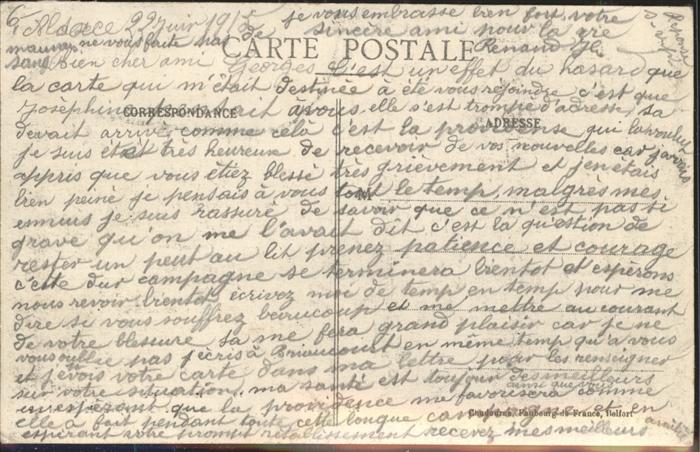 Alsace 22 juin 1915
je vous embrasse bien fort, votre
sincère ami pour la vie
Renaud
Réponse
CARTE POSTALE
bien cher ami Georges C'est un effet du hasard que
la carte qui m'était destinée a été vous rejoindre c'est que
Joséphine à vous elle s'est trompé d'adresse, sa
CORRESPONDANCE
ADRESSE
devait arrivé comme celà c'est la providense qui la voulut
je suis été très heureuse de recevoir de vos nouvelles car j'avais
appris que vous étiez blessé très grièvement et j'en étais
bien peiné je pensais à vous tout le temp, malgrès mes
M
ennuis je suis rassuré de savoir que ce n'est pas si
grave qu'on me l'avait dit c'est la question de
rester un peut au lit prenez patience et courage
cette dur campagne se terminera bientot et esperons
nous revoir bientot, écrivez moi de temp en temp pour me
dire si vous souffrez beaucoup et me mettre au courant
de votre blessure, sa me fera grand plaisir car je ne
vous oublie pas j'écris à Briaucourt en même temp qu'a vous
et j'evois votre carte dans ma lettre pour les renseigner
sur votre situation, ma santé est toujour des meilleurs
ainsi que
en espérant que la providence me favorisera comme
Chadourne, Faubourg de France, Belfort
elle a fait pendant toute cette longue campagne et en
espérant votre prompt rétablissement recevez mes meilleurs
amitiés